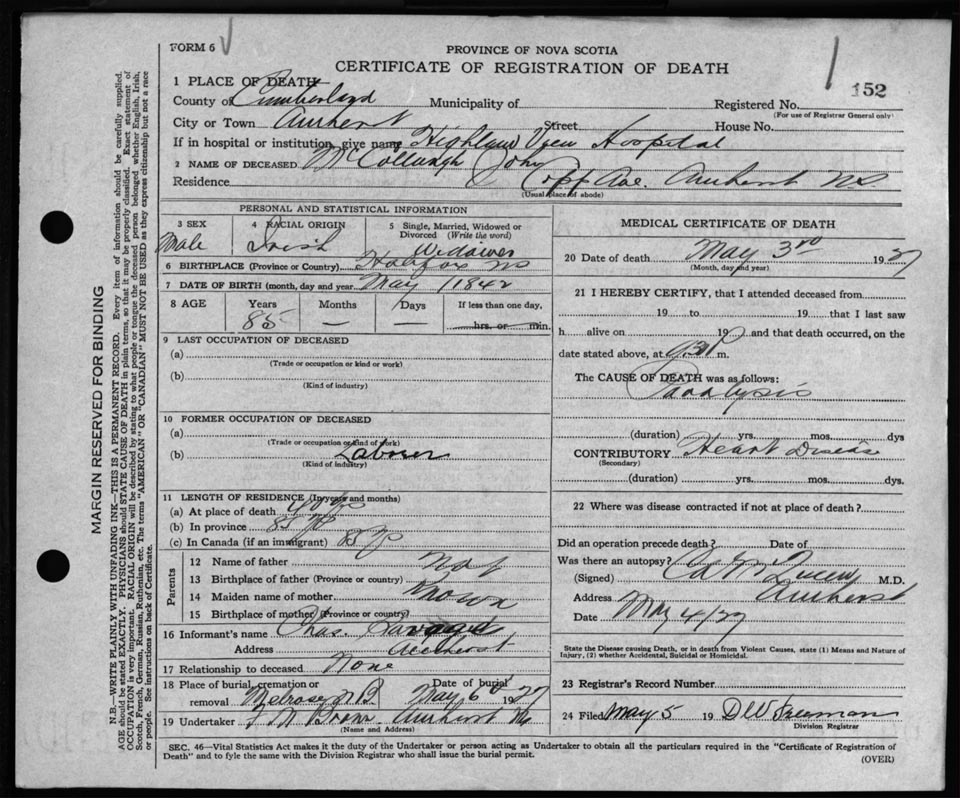 FORM 6
PROVINCE OF NOVA SCOTIA
CERTIFICATE OF REGISTRATION OF DEATH
152
1 PLACE OF DEATH
County of Cumberland Municipality of Registered No.
(For use of Registrar General only)
City or Town Amherst Street House No.
If in hospital or institution, give name Highland View Hospital
2 NAME OF DECEASED McCollough John
Residence Copp Ave. Amherst NS
(Usual place of abode)
PERSONAL AND STATISTICAL INFORMATION
3 SEX Male
4 RACIAL ORIGIN Irish
5 Single, Married, Widowed or Divorced (Write the word) Widower
6 BIRTHPLACE (Province or Country) Halifax NS
7 DATE OF BIRTH (month, day and year) May 1842
8 AGE Years Months Days If less than one day,
85 — — hrs. or min.
9 LAST OCCUPATION OF DECEASED
(a)
(Trade or occupation or kind or work)
(b)
(Kind of industry)
10 FORMER OCCUPATION OF DECEASED
(a)
(Trade or occupation or kind of work)
(b) Laborer
(Kind of industry)
11 LENGTH OF RESIDENCE (In years and months)
(a) At place of death
(b) In province 85
(c) In Canada (if an immigrant)
Parents
12 Name of father Not
13 Birthplace of father (Province or country)
14 Maiden name of mother Known
15 Birthplace of mother (Province or country)
16 Informant's name Chas.
Address Amherst
17 Relationship to deceased None
18 Place of burial, cremation or removal Melrose N B. Date of burial May 6 1927
19 Undertaker Amherst NS
(Name and Address)
MEDICAL CERTIFICATE OF DEATH
20 Date of death May 3rd 1927
(Month, day and year)
21 I HEREBY CERTIFY, that I attended deceased from
19 to 19 that I last saw
h alive on 19 and that death occurred, on the
date stated above, at m.
The CAUSE OF DEATH was as follows:
Paralysis
(duration) yrs. mos. dys
CONTRIBUTORY Heart Disease
(Secondary)
(duration) yrs. mos. dys.
22 Where was disease contracted if not at place of death?
Did an operation precede death? Date of
Was there an autopsy?
(Signed) M.D.
Address Amherst
Date May 4/27
State the Disease causing Death, or in death from Violent Causes, state (1) Means and Nature of
Injury, (2) whether Accidental, Suicidal or Homicidal.
23 Registrar's Record Number
24 Filed May 5 19 DW Freeman
Division Registrar
SEC. 46—Vital Statistics Act makes it the duty of the Undertaker or person acting as Undertaker to obtain all the particulars required in the "Certificate of Registration of
Death" and to fyle the same with the Division Registrar who shall issue the burial permit.
(OVER)
MARGIN RESERVED FOR BINDING
N.B.—WRITE PLAINLY WITH UNFADING INK—THIS IS A PERMANENT RECORD. Every item of information should be carefully supplied.
AGE should be stated EXACTLY. PHYSICIANS should STATE CAUSE OF DEATH in plain terms, so that it may be properly classified. Exact statement of
OCCUPATION is very important. RACIAL ORIGIN will be described by stating to what people or tongue the deceased person belonged whether English, Irish,
Scotch, French, German, Russian, Ruthenian, etc. The terms "AMERICAN" OR "CANADIAN" MUST NOT BE USED as they express citizenship but not a race
or people. See instructions on back of Certificate.